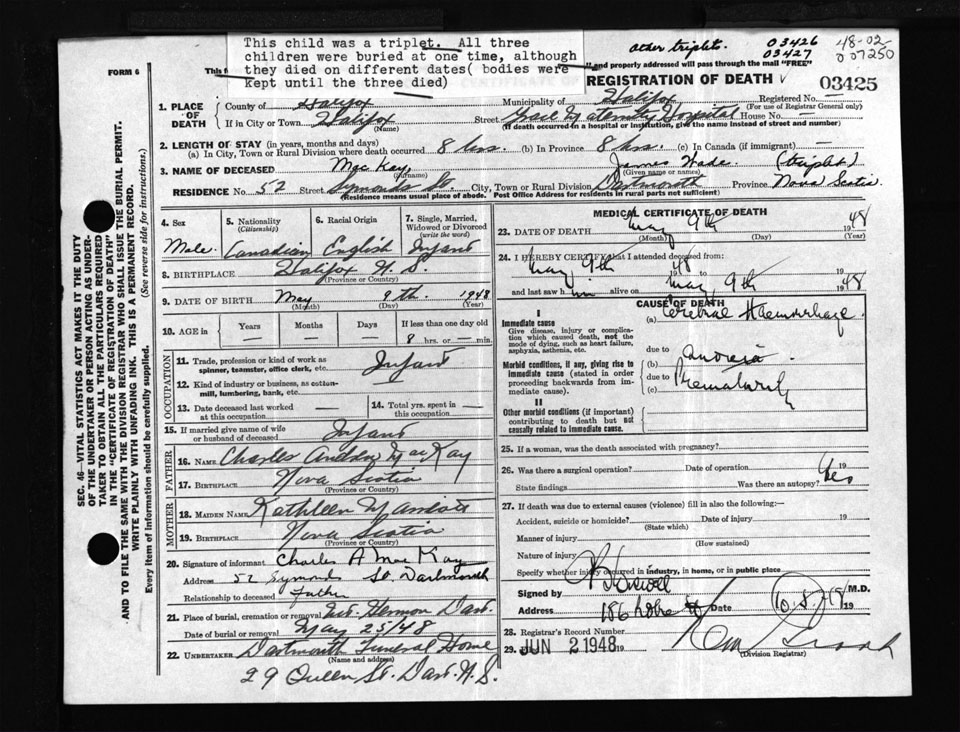 This child was a triplet. All three
children were buried at one time, although
they died on different dates( bodies were
kept until the three died)
other triplet. 03426
03427
48-02-
007250
FORM 6
This f
and properly addressed will pass through the mail "FREE"
REGISTRATION OF DEATH
03425
1. PLACE OF DEATH
County of Halifax
Municipality of Halifax
Registered No. —
(For use of Registrar General only)
If in City or Town Halifax
(Name)
Street Grace Maternity Hospital House No. —
(If death occurred in a hospital or institution, give the name instead of street and number)
2. LENGTH OF STAY (in years, months and days)
(a) In City, Town or Rural Division where death occurred 8 hrs. (b) In Province 8 hrs. (c) In Canada (if immigrant) —
3. NAME OF DECEASED Mac Kay, James Wade (triplet)
(Surname) (Given name or names)
RESIDENCE No. 52 Street Symonds St. City, Town or Rural Division Dartmouth Province Nova Scotia
(Residence means usual place of abode. Post Office Address for residents in rural parts not sufficient)
SEC. 46—VITAL STATISTICS ACT MAKES IT THE DUTY
OF THE UNDERTAKER OR PERSON ACTING AS UNDER-
TAKER TO OBTAIN ALL THE PARTICULARS REQUIRED
IN THE "CERTIFICATE OF REGISTRATION OF DEATH"
AND TO FILE THE SAME WITH THE DIVISION REGISTRAR WHO SHALL ISSUE THE BURIAL PERMIT.
WRITE PLAINLY WITH UNFADING INK. THIS IS A PERMANENT RECORD.
Every item of information should be carefully supplied. (See reverse side for instructions.)
4. Sex
Male
5. Nationality
(Citizenship)
Canadian
6. Racial Origin
English
7. Single, Married,
Widowed or Divorced
(write the word)
Infant
8. BIRTHPLACE Halifax N. S.
(Province or Country)
9. DATE OF BIRTH May 9th. 1948
(Month) (Day) (Year)
10. AGE IN
Years Months Days If less than one day old
— — — 8 hrs. or — min.
OCCUPATION
11. Trade, profession or kind of work as
spinner, teamster, office clerk, etc. Infant
12. Kind of industry or business, as cotton-
mill, lumbering, bank, etc.
13. Date deceased last worked
at this occupation —
14. Total yrs. spent in
this occupation —
15. If married give name of wife
or husband of deceased Infant
FATHER
16. NAME Charles Andrew MacKay
17. BIRTHPLACE Nova Scotia
(Province or Country)
MOTHER
18. MAIDEN NAME Kathleen
19. BIRTHPLACE Nova Scotia
(Province or Country)
20. Signature of informant Charles A Mac Kay
Address 52 Symonds St. Dartmouth
Relationship to deceased Father
21. Place of burial, cremation or removal Mt. Hermon Dart.
Date of burial or removal May 25/48
22. UNDERTAKER Dartmouth Funeral Home
(Name and address)
29 Queen St. Dart. N. S.
MEDICAL CERTIFICATE OF DEATH
23. DATE OF DEATH May 9th 1948
(Month) (Day) (Year)
24. I HEREBY CERTIFY that I attended deceased from:
May 9th 1948 to May 9th 1948
and last saw him alive on May 9th 1948
CAUSE OF DEATH
I
Immediate cause
Give disease, injury or complica-
tion which caused death, not the
mode of dying, such as heart failure,
asphyxia, asthenia, etc.
(a) Cerebral Haemorrhage.
due to
Morbid conditions, if any, giving rise to
immediate cause (stated in order
proceeding backwards from im-
mediate cause).
(b) anoxia.
due to
(c) Prematurity
II
Other morbid conditions (if important)
contributing to death but not
causally related to immediate cause.
25. If a woman, was the death associated with pregnancy?
26. Was there a surgical operation? Date of operation 19
State findings Was there an autopsy? Yes
27. If death was due to external causes (violence) fill in also the following:
Accident, suicide or homicide? Date of injury 19
(State which)
Manner of injury
(How sustained)
Nature of injury
Specify whether injury occurred in industry, in home, or in public place
Signed by M.D.
Address 186 Date 10.5.1948
28. Registrar's Record Number
29. JUN 2 1948 19
(Division Registrar)